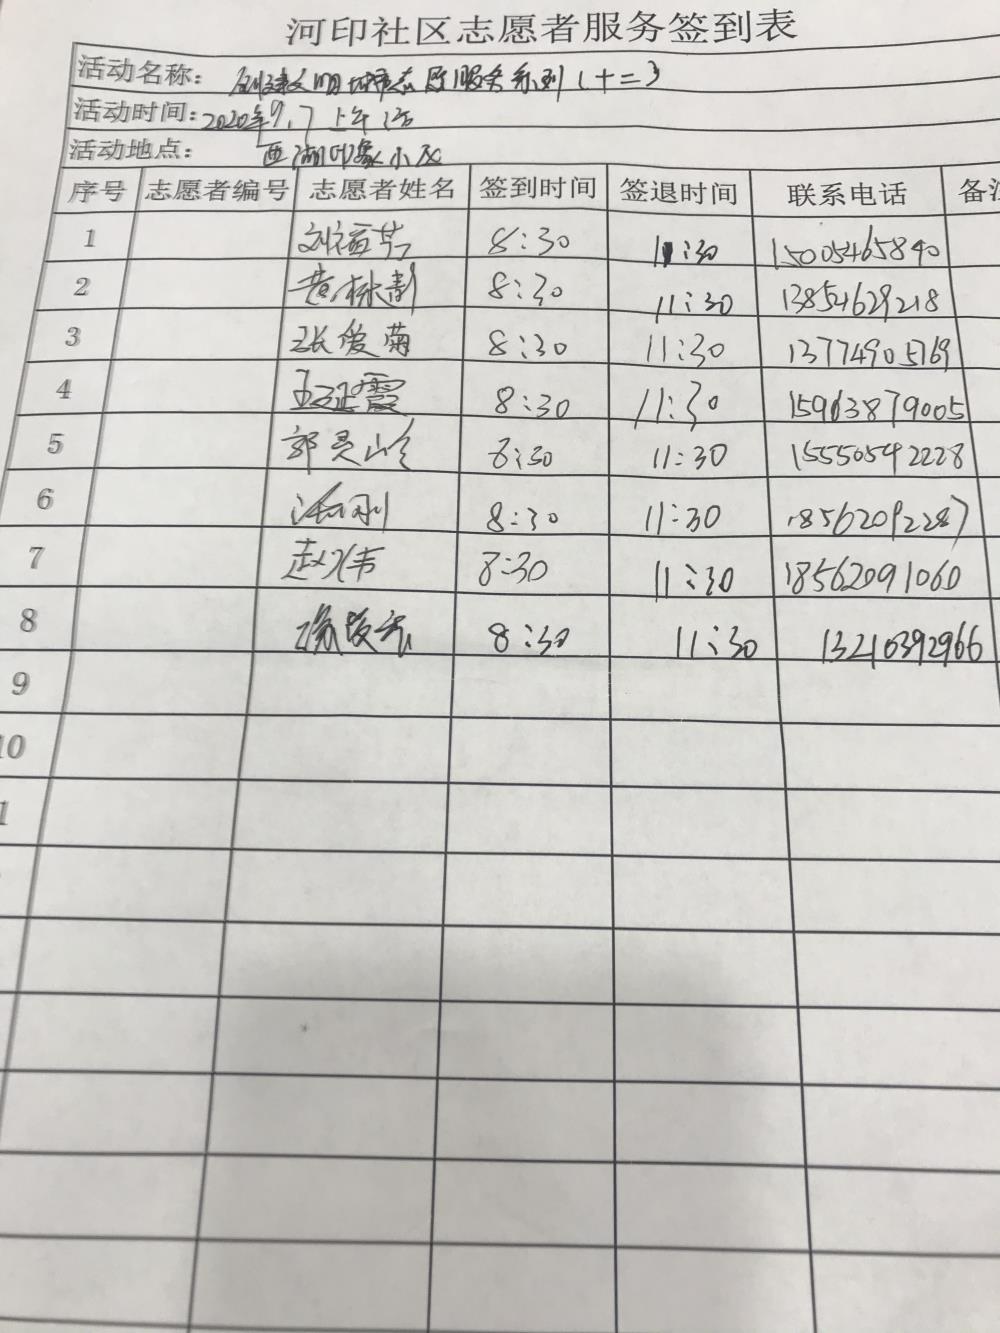 河印社区志愿者服务签到表
活动名称: 创建文明城市志愿服务系列(十二)
活动时间: 2020年9.7 上午
活动地点: 西湖印象小区
序号 志愿者编号 志愿者姓名 签到时间 签退时间 联系电话 备注
1 8:30 11:30 15005465840
2 8:30 11:30 13854629218
3 张爱菊 8:30 11:30 13774905769
4 王延霞 8:30 11:30 15963879005
5 郭灵山 8:30 11:30 15550542228
6 8:30 11:30 18562092287
7 赵伟 8:30 11:30 18562091060
8 8:30 11:30 13210392966
9
10